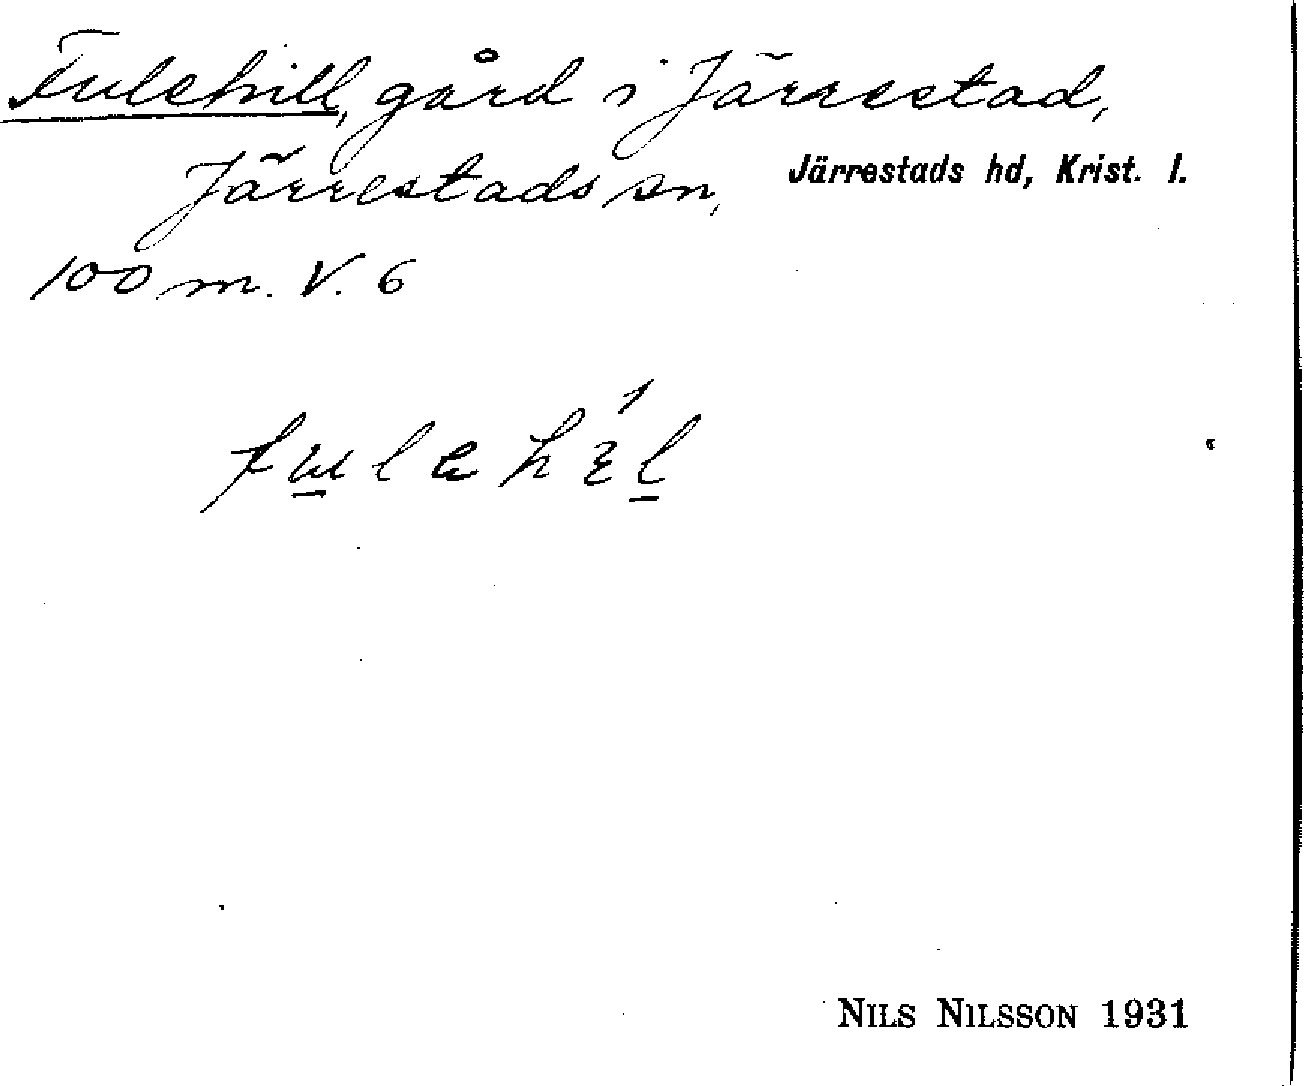 Fulehill, gård i Järrestad,
Järrestads sn, Järrestads hd, Krist. l.
100 m. V. 6
NILS NILSSON 1931